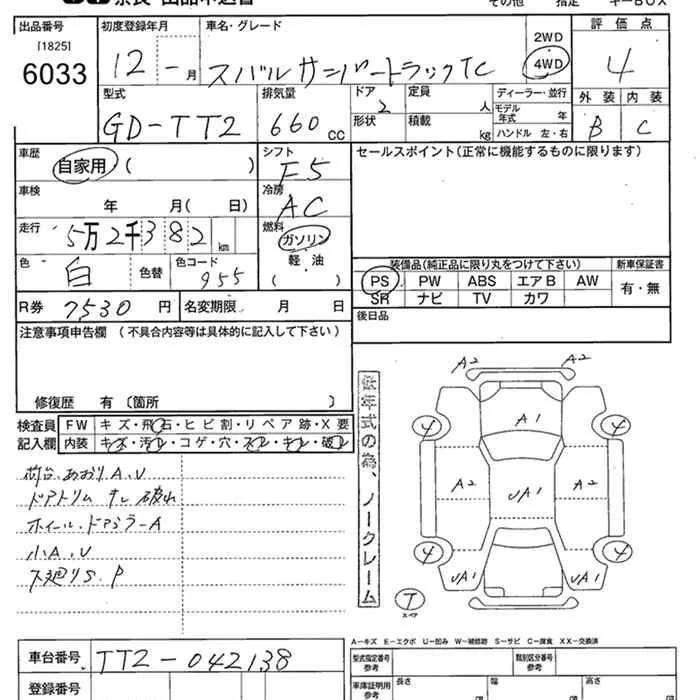 奈良 出品申込書
その他 指定 キーBOX
出品番号
[1825]
6033
初度登録年月
12 - 月
車名・グレード
スバル サンバートラック TC
2WD
4WD
評価点
4
型式
GD-TT2
排気量
660 cc
ドア
2
形状
定員
人
積載
kg
ディーラー・並行
モデル年式 年
ハンドル 左・右
外装 内装
B C
車歴
自家用 ( )
シフト
F5
セールスポイント(正常に機能するものに限ります)
車検
年 月( 日)
冷房
AC
走行
5万2千382 km
燃料
ガソリン
軽・油
( )
色
白
色替
色コード
955
装備品(純正品に限り丸をつけて下さい)
新車保証書
PS PW ABS エアB AW
SR ナビ TV カワ
有・無
R券 7530 円
名変期限 月 日
後日品
注意事項申告欄 (不具合内容等は具体的に記入して下さい)
修復歴 有 〔箇所 〕
検査員
記入欄
FW キズ・飛石・ヒビ割・リペア跡・X要
内装 キズ・汚レ・コゲ・穴・スレ・キレ・破レ
荷台、あおりA、U
ドアトリム サレ 破れ
ホイール・ドアミラーA
小A、U
下廻りS、P
低年式の為、ノークレーム
A2 A2
A1
4 4
A2 UA1 A2
4 4
UA1 UA1
T
スペア
A-キズ E-エクボ U-凹み W-補修跡 S-サビ C-腐食 XX-交換済
車台番号 TT2-042138
登録番号
型式指定番号
参考
類別区分番号
参考
車庫証明用
参考
長さ
幅
高さ